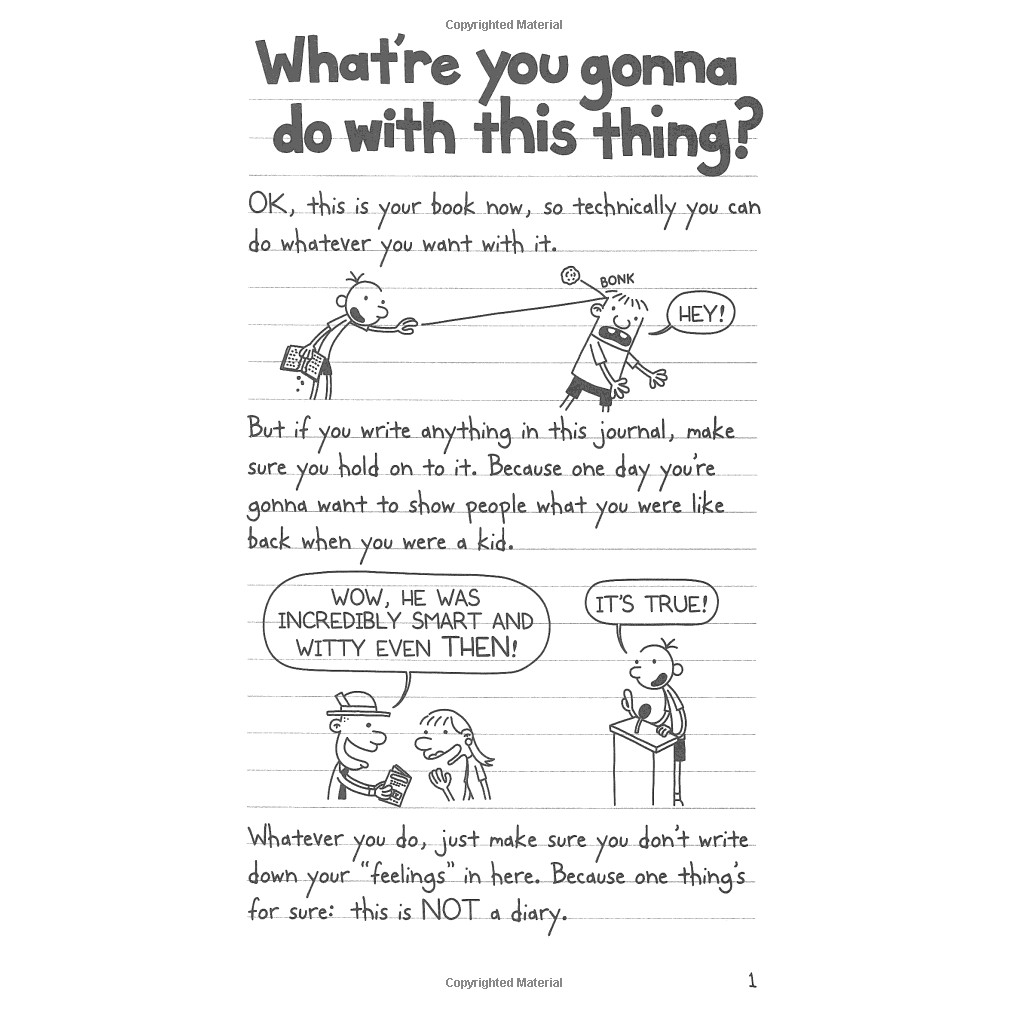 Copyrighted Material
What're you gonna
do with this thing?
OK, this is your book now, so technically you can
do whatever you want with it.
BONK
HEY!
But if you write anything in this journal, make
sure you hold on to it. Because one day you're
gonna want to show people what you were like
back when you were a kid.
WOW, HE WAS
INCREDIBLY SMART AND
WITTY EVEN THEN!
IT'S TRUE!
Whatever you do, just make sure you don't write
down your "feelings" in here. Because one thing's
for sure: this is NOT a diary.
Copyrighted Material
1